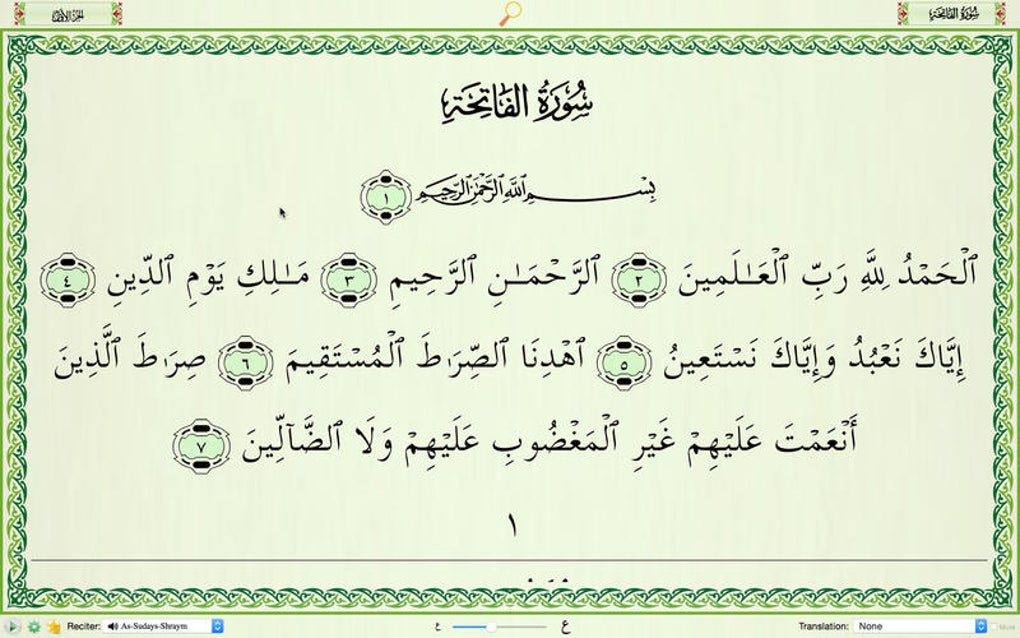 الجزء الأول
سُورَةُ الفَاتِحَةِ
سُورَةُ الفَاتِحَةِ
بِسْمِ اللَّهِ الرَّحْمَٰنِ الرَّحِيمِ ١
ٱلْحَمْدُ لِلَّهِ رَبِّ ٱلْعَـٰلَمِينَ ٢ ٱلرَّحْمَـٰنِ ٱلرَّحِيمِ ٣ مَـٰلِكِ يَوْمِ ٱلدِّينِ ٤
إِيَّاكَ نَعْبُدُ وَإِيَّاكَ نَسْتَعِينُ ٥ ٱهْدِنَا ٱلصِّرَٰطَ ٱلْمُسْتَقِيمَ ٦ صِرَٰطَ ٱلَّذِينَ
أَنْعَمْتَ عَلَيْهِمْ غَيْرِ ٱلْمَغْضُوبِ عَلَيْهِمْ وَلَا ٱلضَّآلِّينَ ٧
١
Reciter: As-Sudays-Shraym ع ع Translation: None Mute